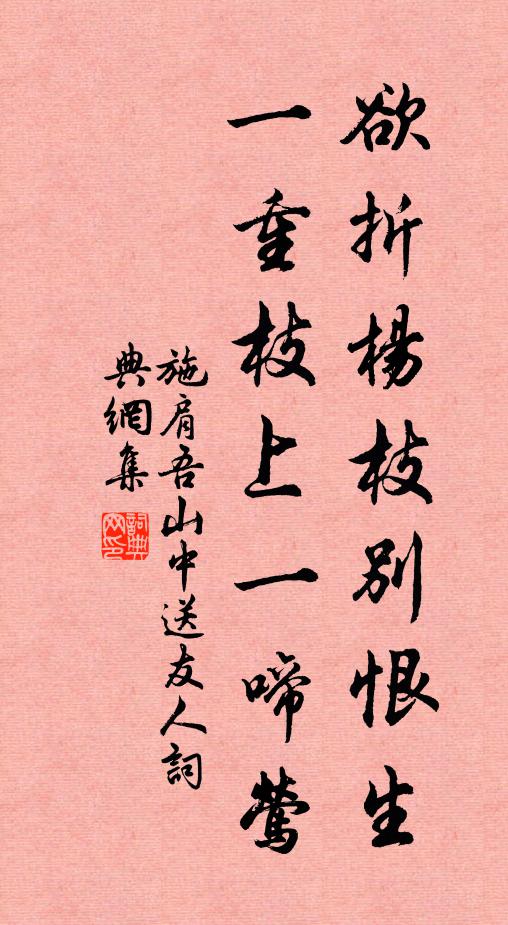 欲折楊枝別恨生
一重枝上一啼鶯
施肩吾山中送友人詞
典網集
詞典网印